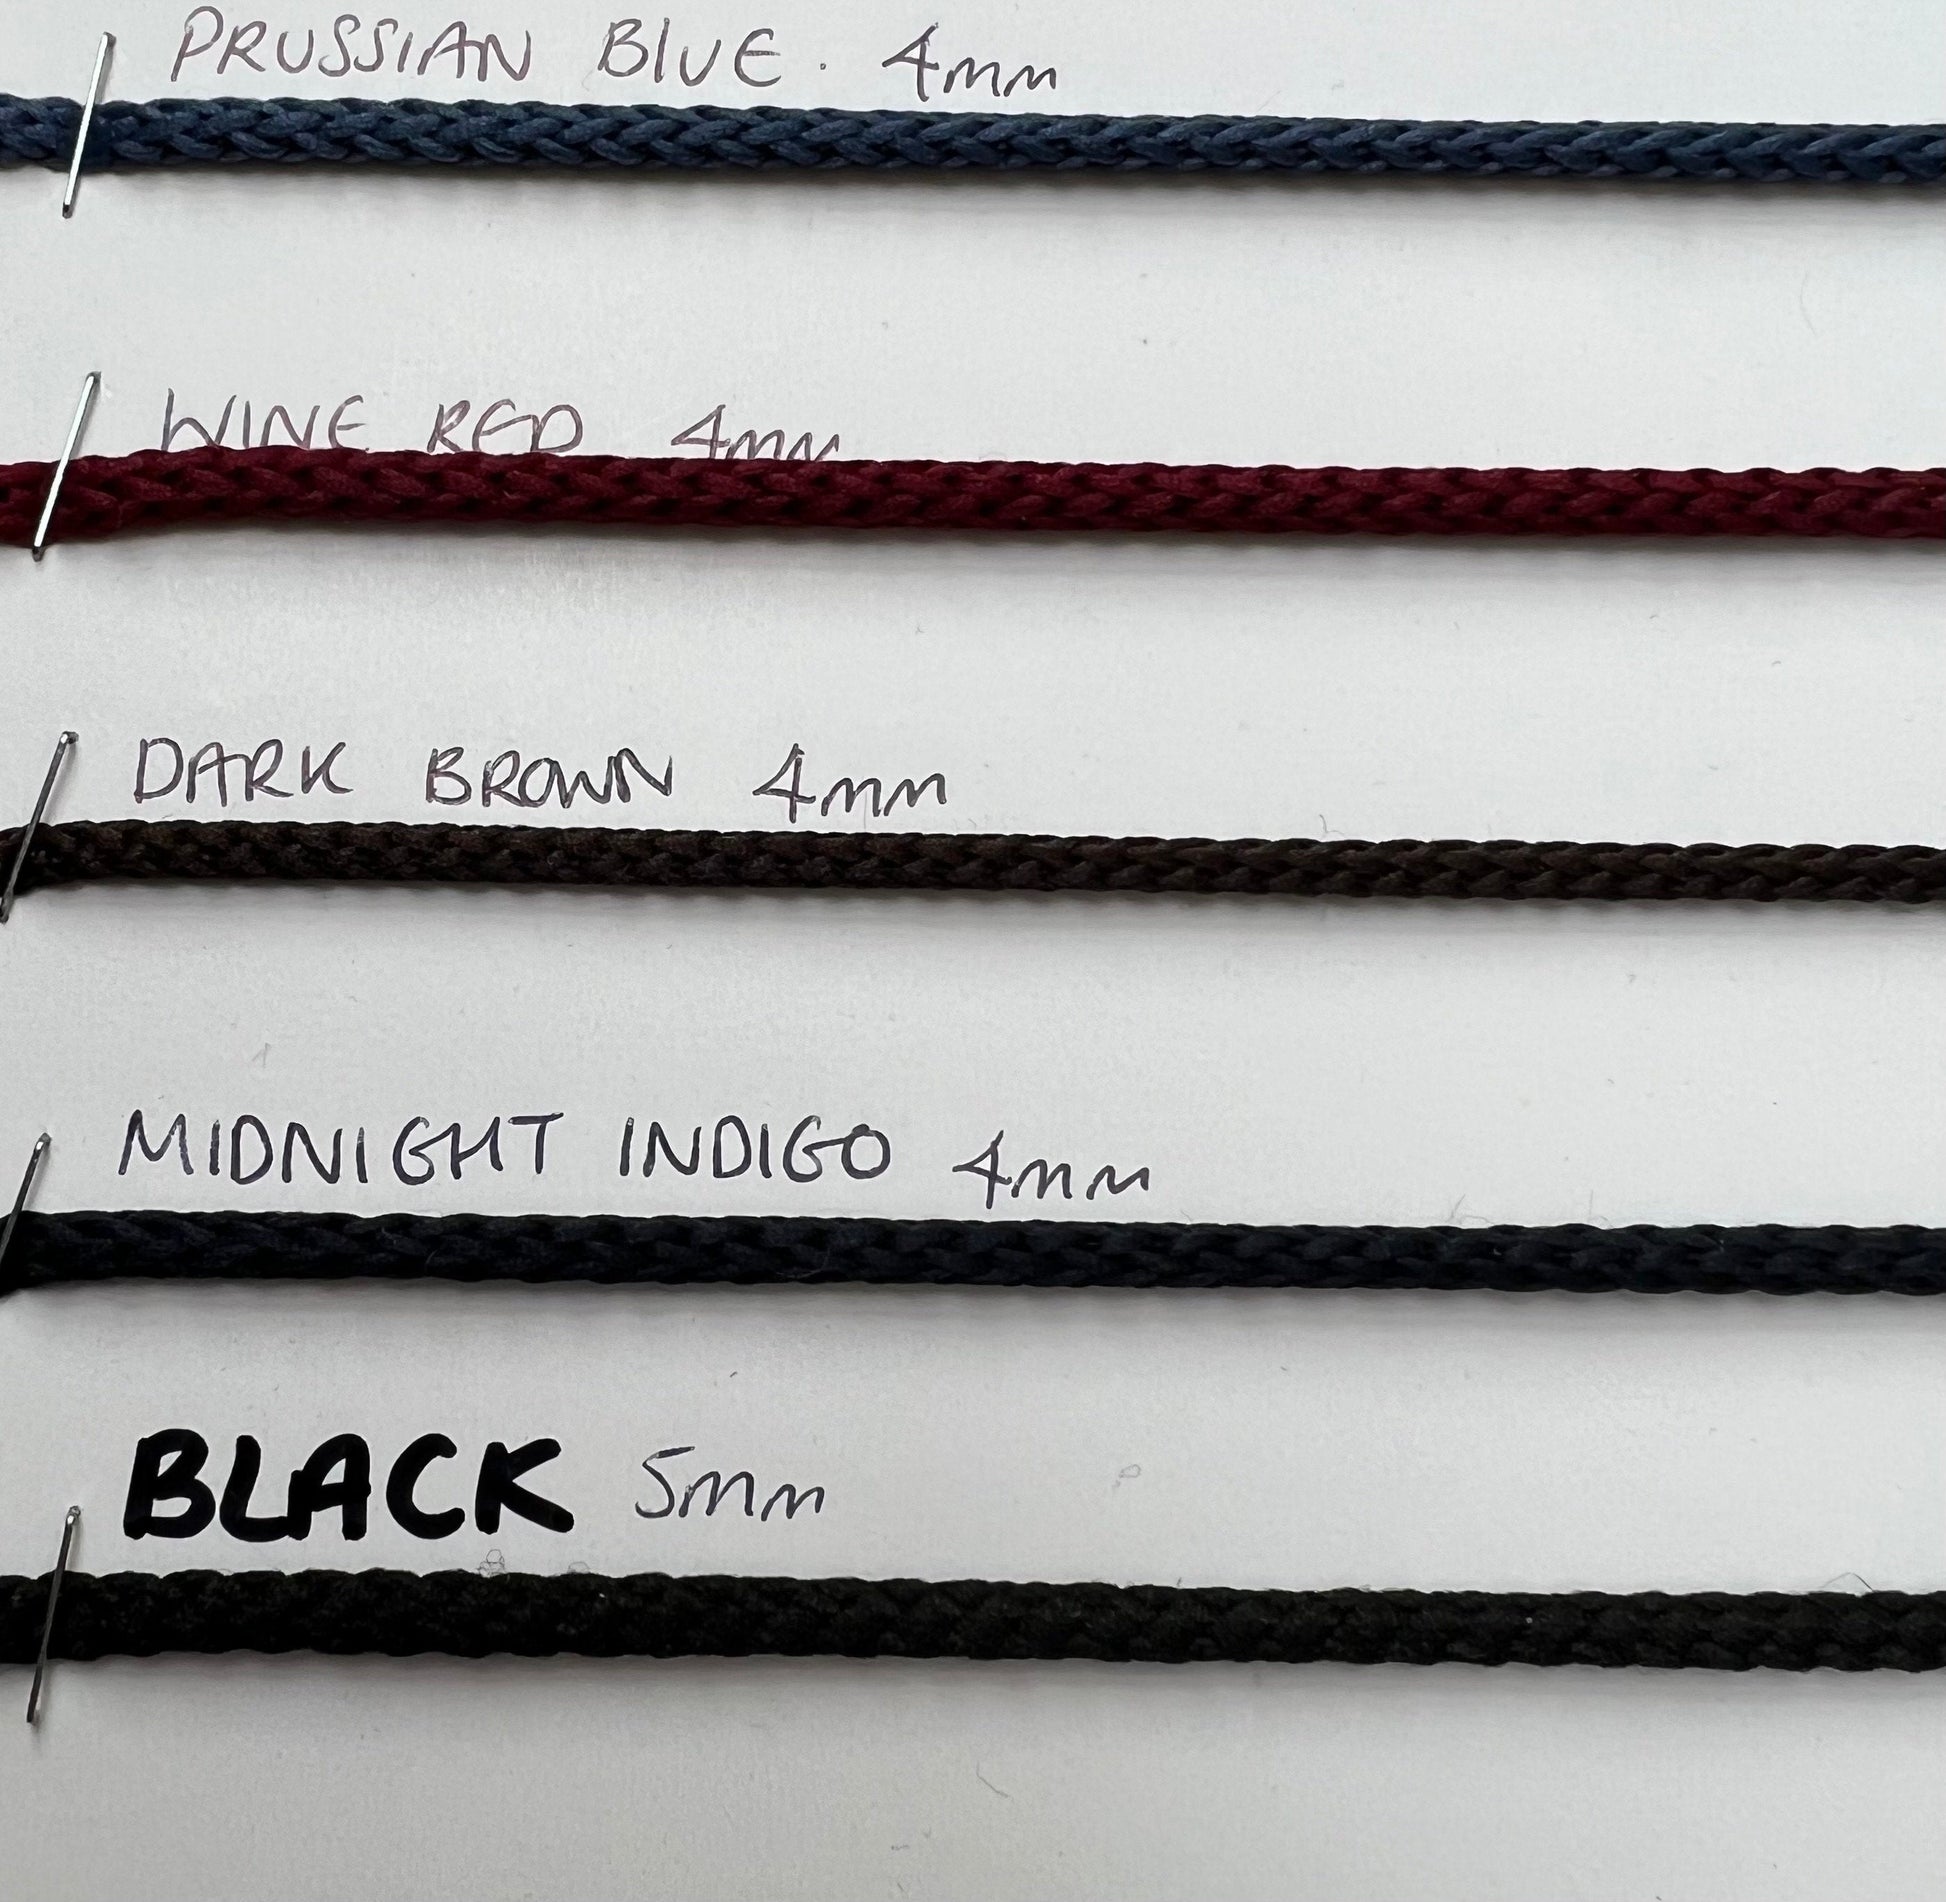 PRUSSIAN BLUE. 4mm
WINE RED 4mm
DARK BROWN 4mm
MIDNIGHT INDIGO 4mm
BLACK 5mm